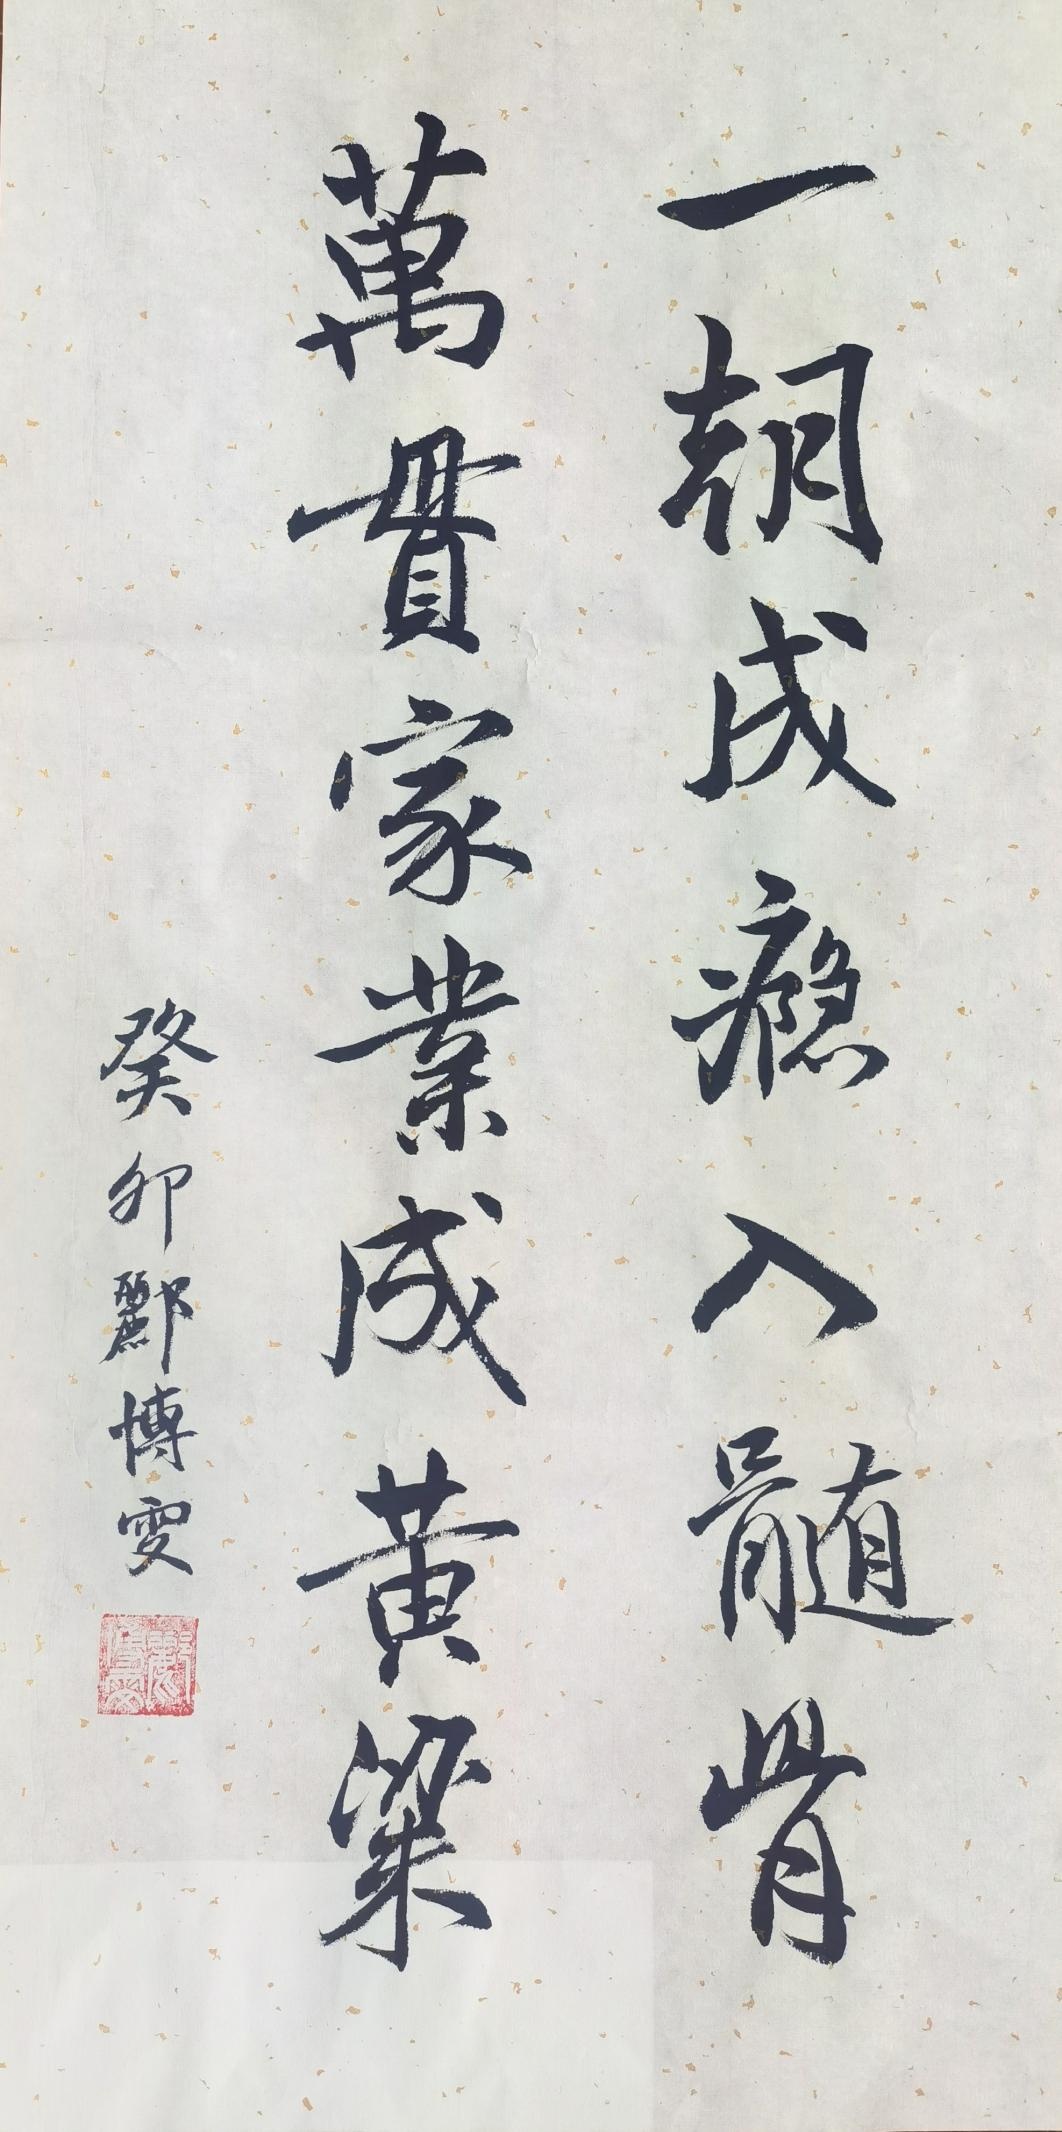 一朝成瘾入髓骨
萬貫家業成黄粱
癸卯酈博雯